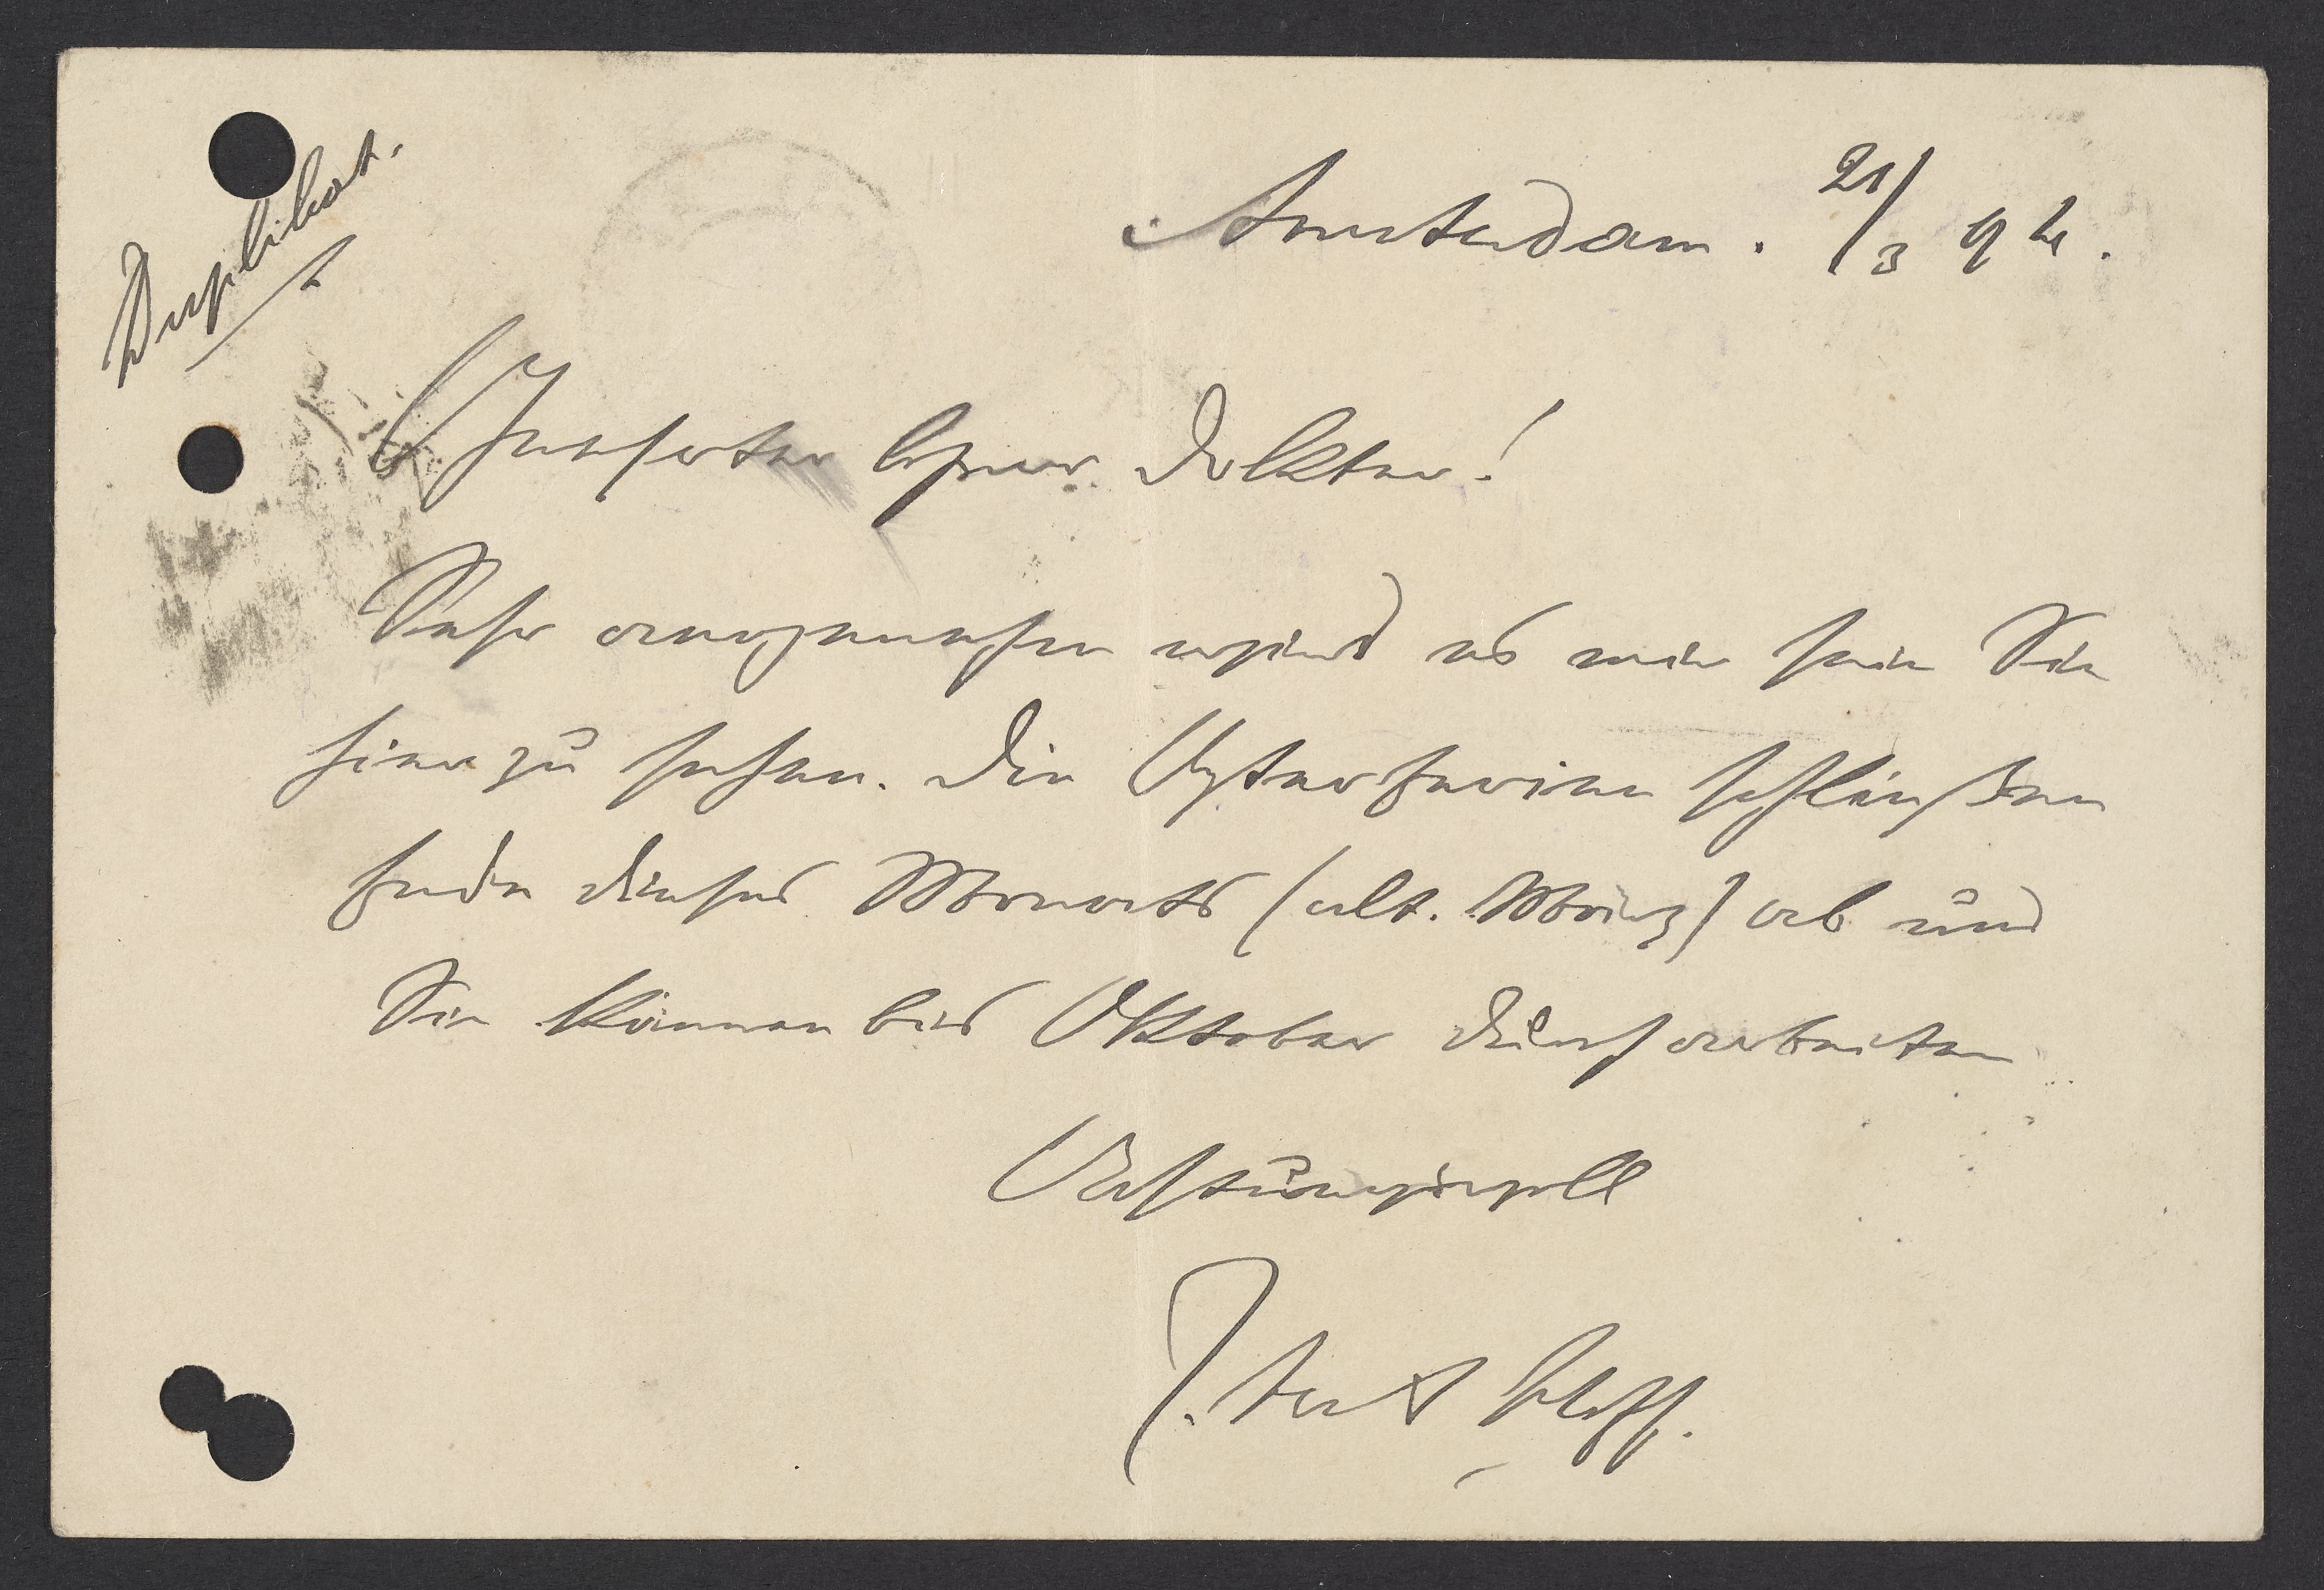 Duplikat.
Amsterdam. 21/3 94.
Geehrter Herr Doktor!
Sehr angenehm wird es mir sein Sie
hier zu sehen. Die Osterferien schließen
Ende dieses Monats (ult. März) ab und
Sie können bis Oktober durcharbeiten
Achtungsvoll
J. van 't Hoff.